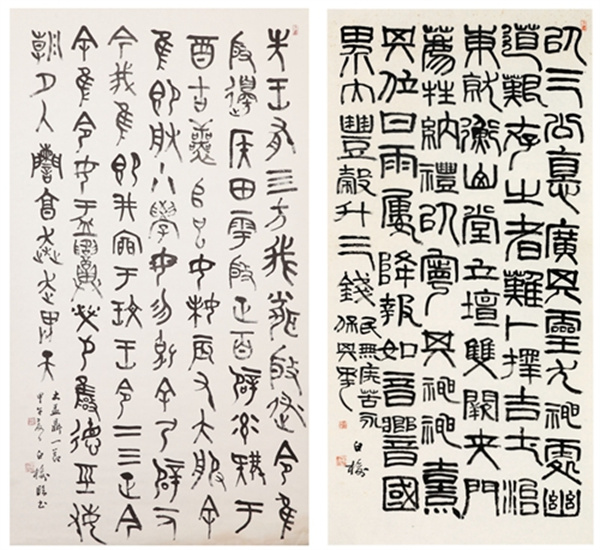 有四方我聞殷述令隹
殷邊侯田雩殷正百辟率肄于
酉古喪師已女妹辰又大服余
隹即朕小學女勿剋余乃辟
今我隹即井廩于玟王令二三正
今余隹令女盂召榮敬雍德經敏
朝夕入讕享奔走畏天
大盂鼎一節
甲午夏白梅臨書
以三公惪廣其靈尤神處幽
道艱存之者難卜擇吉土治
東就衡山堂立壇雙闕夾門
薦牲納禮以寧其神神熹
其位甘雨屢降報如景響國
界大豐穀斗三錢民無疾苦永
保其年
白梅